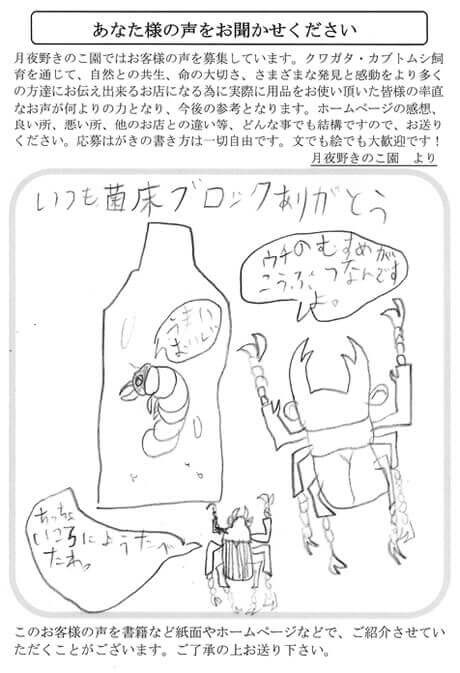 あなた様の声をお聞かせください
月夜野きのこ園ではお客様の声を募集しています。クワガタ・カブトムシ飼
育を通じて、自然との共生、命の大切さ、さまざまな発見と感動をより多く
の方達にお伝え出来るお店になる為に実際に用品をお使い頂いた皆様の率直
なお声が何よりの力となり、今後の参考となります。ホームページの感想、
良い所、悪い所、他のお店との違い等、どんな事でも結構ですので、お送り
ください。応募はがきの書き方は一切自由です。文でも絵でも大歓迎です！
月夜野きのこ園　より
いつも菌床ブロックありがとう
ウチのむすめが
こうぶつなんです
よ。
うまい
おいしい
いっ
にようたべ
たわっ
このお客様の声を書籍など紙面やホームページなどで、ご紹介させてい
ただくことがございます。ご了承の上お送り下さい。